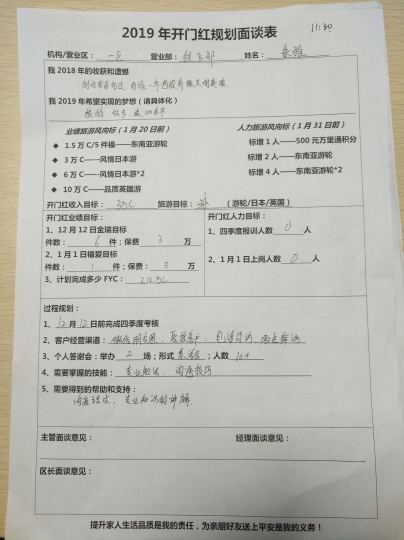 2019 年开门红规划面谈表
11:30
机构/营业区： 一区 营业部： 姓名：
我 2018 年的收获和遗憾
我 2019 年希望实现的梦想（请具体化）
业绩旅游风向标（1 月 20 日前） 人力旅游风向标（1 月 31 日前）
◆ 1.5 万 C/5 件福——东南亚游轮 标增 1 人——500 元万里通积分
◆ 3 万 C——风情日本游 标增 2 人——东南亚游轮
◆ 6 万 C——风情日本游*2 标增 4 人——东南亚游轮*2
◆ 10 万 C——品质英国游
开门红收入目标： 3万C 旅游目标： （游轮/日本/英国）
开门红业绩目标： 开门红人力目标：
1、12 月 12 日金瑞目标 1、四季度报训人数 0 人
件数： 6 件；保费 3 万
2、1 月 1 日福爱目标 2、1 月 1 日上岗人数 0 人
件数： 1 件；保费： 3 万
3、计划完成多少 FYC：
过程规划：
1、 12 月 12 日前完成四季度考核
2、客户经营渠道：
3、个人答谢会：举办 2 场；形式 ；人数 10+
4、需要掌握的技能： 专业知识、沟通技巧
5、需要得到的帮助和支持：
沟通话术、专业知识的讲解
主管面谈意见： 经理面谈意见：
区长面谈意见：
提升家人生活品质是我的责任，为亲朋好友送上平安是我的义务！